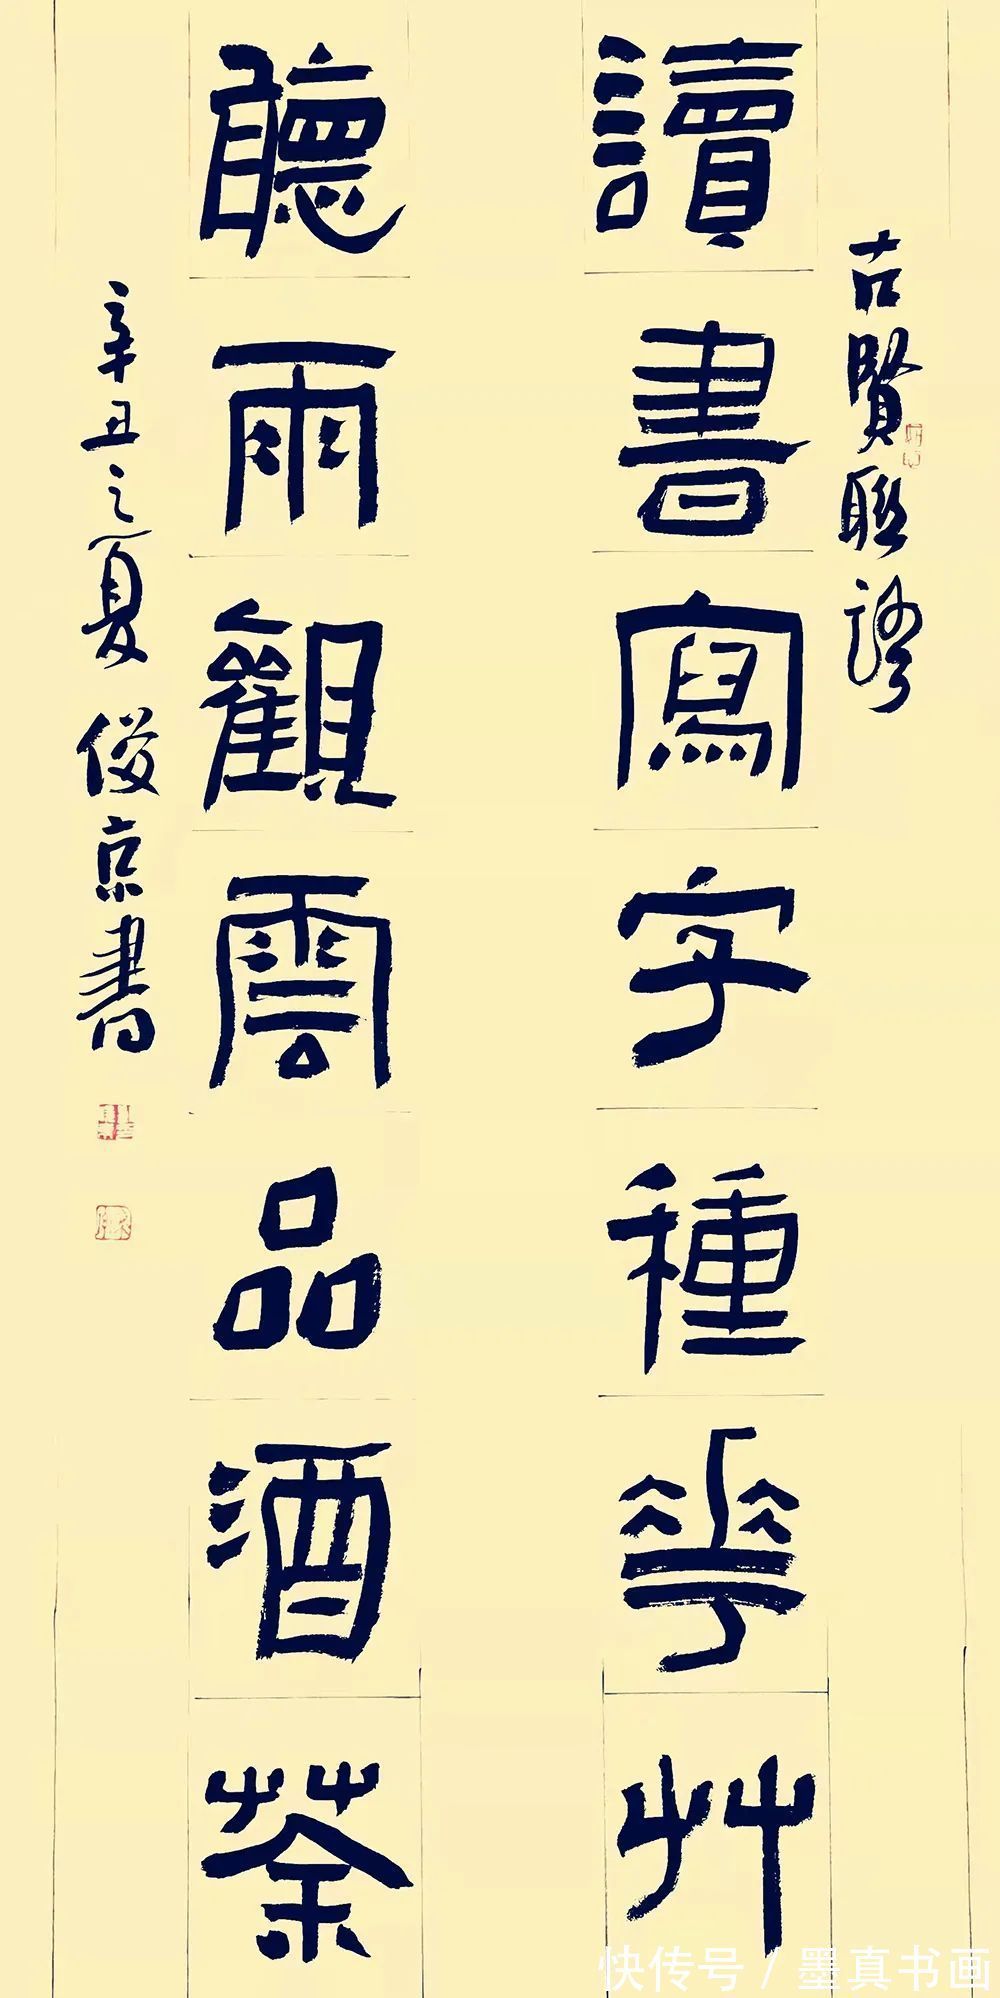 古賢聯語
讀書寫字種花艸
聽雨觀雲品酒茶
辛丑之夏 俊京書
快传号 / 墨真书画